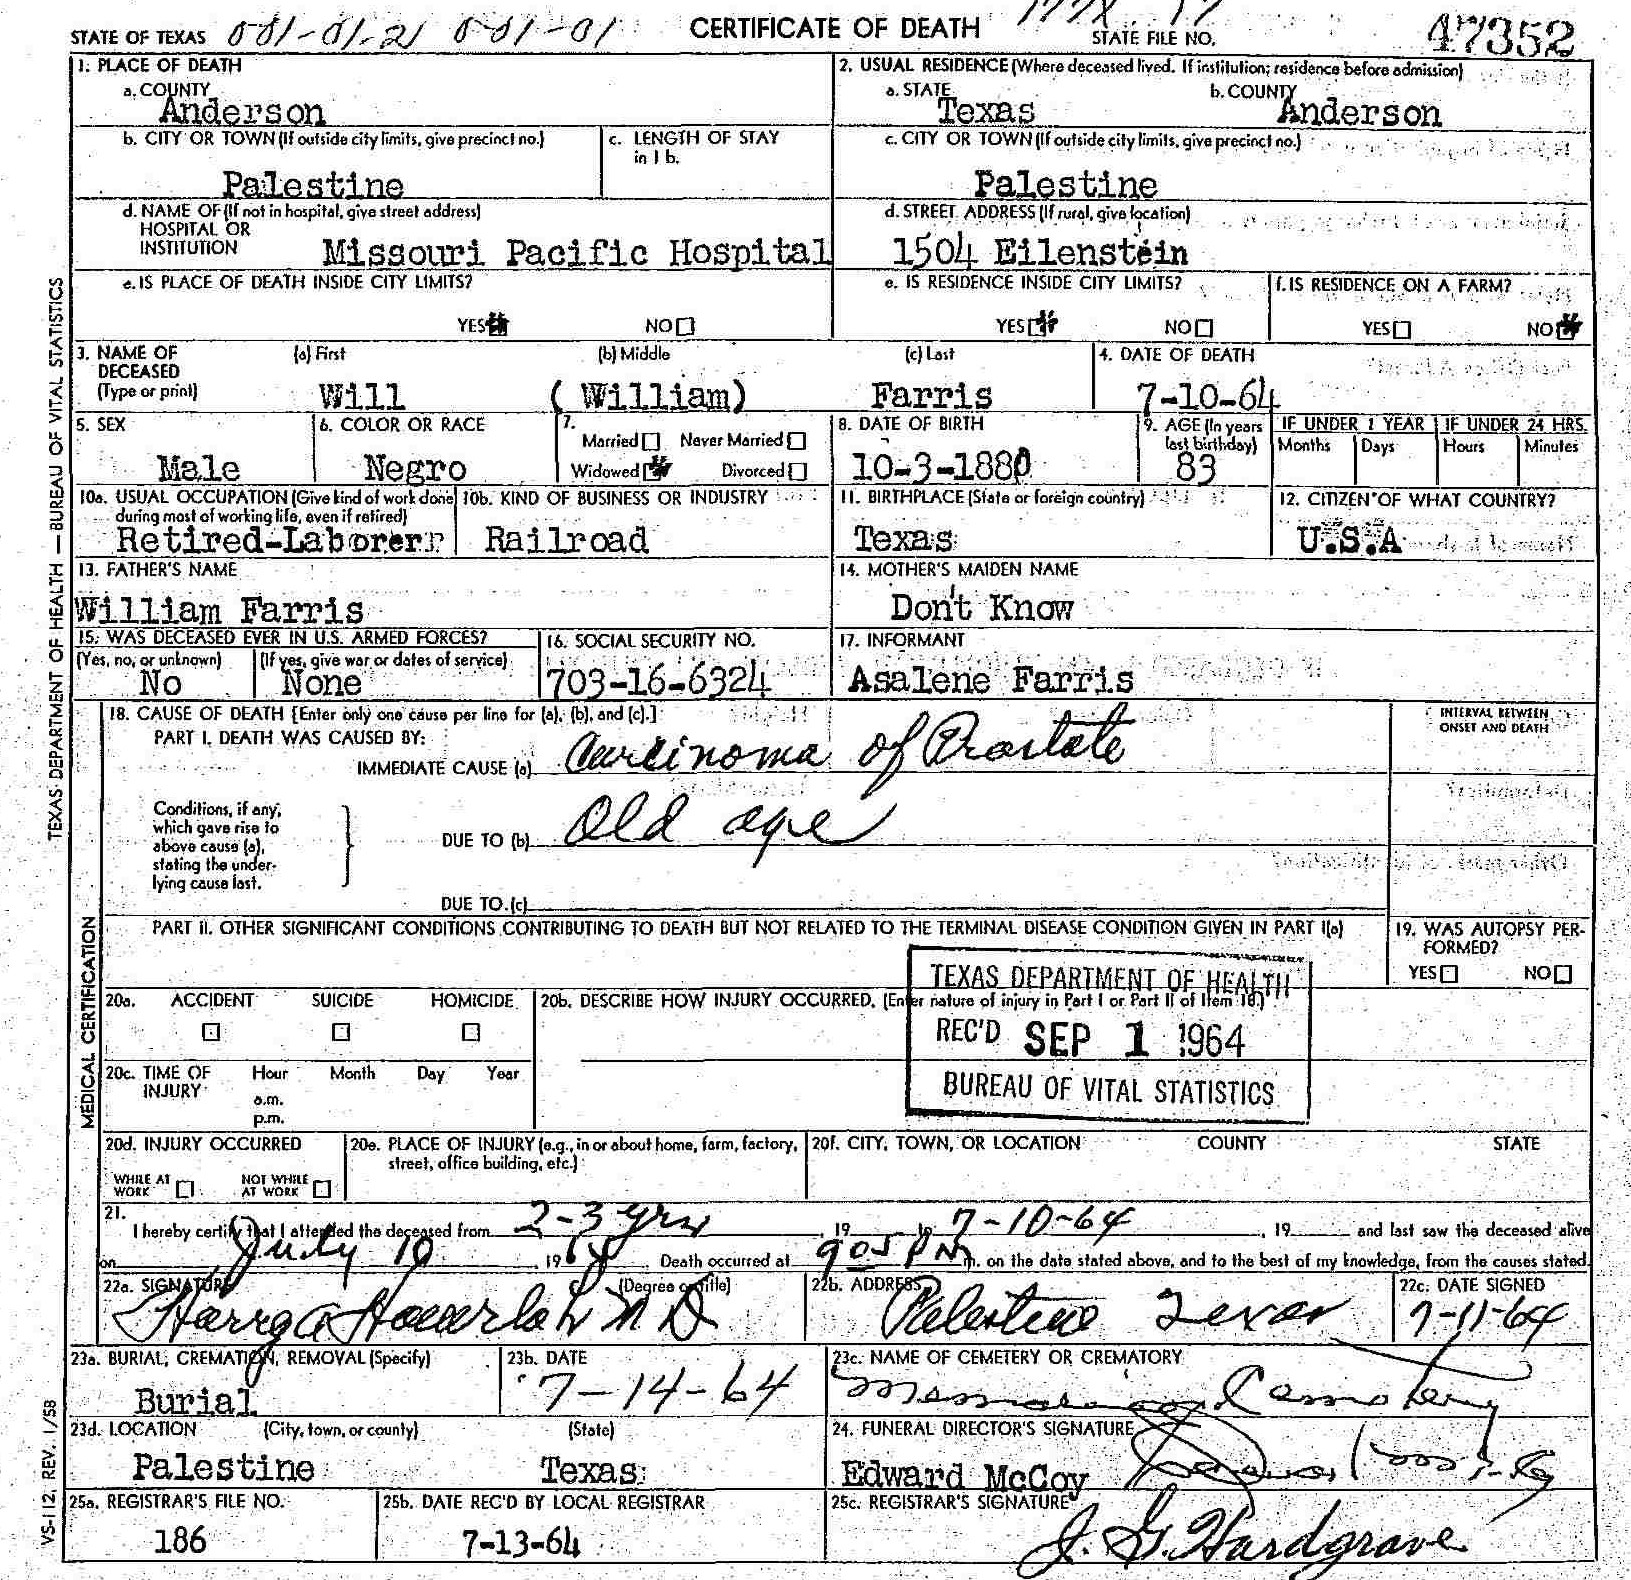 STATE OF TEXAS 001-01-21 001-01 CERTIFICATE OF DEATH STATE FILE NO. 47352
1. PLACE OF DEATH
a. COUNTY
Anderson
2. USUAL RESIDENCE (Where deceased lived. If institution; residence before admission)
a. STATE b. COUNTY
Texas Anderson
b. CITY OR TOWN (If outside city limits, give precinct no.)
Palestine
c. LENGTH OF STAY
in 1 b.
c. CITY OR TOWN (If outside city limits, give precinct no.)
Palestine
d. NAME OF (If not in hospital, give street address)
HOSPITAL OR
INSTITUTION Missouri Pacific Hospital
d. STREET ADDRESS (If rural, give location)
1504 Eilenstein
e. IS PLACE OF DEATH INSIDE CITY LIMITS?
YES NO
e. IS RESIDENCE INSIDE CITY LIMITS?
YES NO
f. IS RESIDENCE ON A FARM?
YES NO
3. NAME OF
DECEASED
(Type or print)
(a) First (b) Middle (c) Last
Will (William) Farris
4. DATE OF DEATH
7-10-64
5. SEX
Male
6. COLOR OR RACE
Negro
7.
Married Never Married
Widowed Divorced
8. DATE OF BIRTH
10-3-1880
9. AGE (In years
last birthday)
83
IF UNDER 1 YEAR IF UNDER 24 HRS.
Months Days Hours Minutes
10a. USUAL OCCUPATION (Give kind of work done
during most of working life, even if retired)
Retired-Laborer
10b. KIND OF BUSINESS OR INDUSTRY
Railroad
11. BIRTHPLACE (State or foreign country)
Texas
12. CITIZEN OF WHAT COUNTRY?
U.S.A
13. FATHER'S NAME
William Farris
14. MOTHER'S MAIDEN NAME
Don't Know
15. WAS DECEASED EVER IN U.S. ARMED FORCES?
(Yes, no, or unknown) (If yes, give war or dates of service)
No None
16. SOCIAL SECURITY NO.
703-16-6324
17. INFORMANT
Asalene Farris
18. CAUSE OF DEATH [Enter only one cause per line for (a), (b), and (c).]
PART I. DEATH WAS CAUSED BY:
IMMEDIATE CAUSE (a) Carcinoma of Prostate
INTERVAL BETWEEN
ONSET AND DEATH
Conditions, if any,
which gave rise to
above cause (a),
stating the under-
lying cause last.
DUE TO (b) Old age
DUE TO (c)
PART II. OTHER SIGNIFICANT CONDITIONS CONTRIBUTING TO DEATH BUT NOT RELATED TO THE TERMINAL DISEASE CONDITION GIVEN IN PART I(a)
19. WAS AUTOPSY PER-
FORMED?
YES NO
20a. ACCIDENT SUICIDE HOMICIDE
20b. DESCRIBE HOW INJURY OCCURRED. (Enter nature of injury in Part I or Part II of Item 18.)
TEXAS DEPARTMENT OF HEALTH
REC'D SEP 1 1964
BUREAU OF VITAL STATISTICS
20c. TIME OF
INJURY
Hour Month Day Year
a.m.
p.m.
20d. INJURY OCCURRED
WHILE AT
WORK
NOT WHILE
AT WORK
20e. PLACE OF INJURY (e.g., in or about home, farm, factory,
street, office building, etc.)
20f. CITY, TOWN, OR LOCATION COUNTY STATE
21.
I hereby certify that I attended the deceased from 2-3 yrs, 19 to 7-10-64, 19 and last saw the deceased alive
on July 10, 1964. Death occurred at 905 PM m. on the date stated above, and to the best of my knowledge, from the causes stated.
22a. SIGNATURE (Degree or title)
M D
22b. ADDRESS
Palestine Texas
22c. DATE SIGNED
7-11-64
23a. BURIAL, CREMATION, REMOVAL (Specify)
Burial
23b. DATE
7-14-64
23c. NAME OF CEMETERY OR CREMATORY
Cemetery
23d. LOCATION (City, town, or county) (State)
Palestine Texas
24. FUNERAL DIRECTOR'S SIGNATURE
Edward McCoy
25a. REGISTRAR'S FILE NO.
186
25b. DATE REC'D BY LOCAL REGISTRAR
7-13-64
25c. REGISTRAR'S SIGNATURE
J. G. Hardgrave
TEXAS DEPARTMENT OF HEALTH — BUREAU OF VITAL STATISTICS
MEDICAL CERTIFICATION
VS-112, REV. 1/58